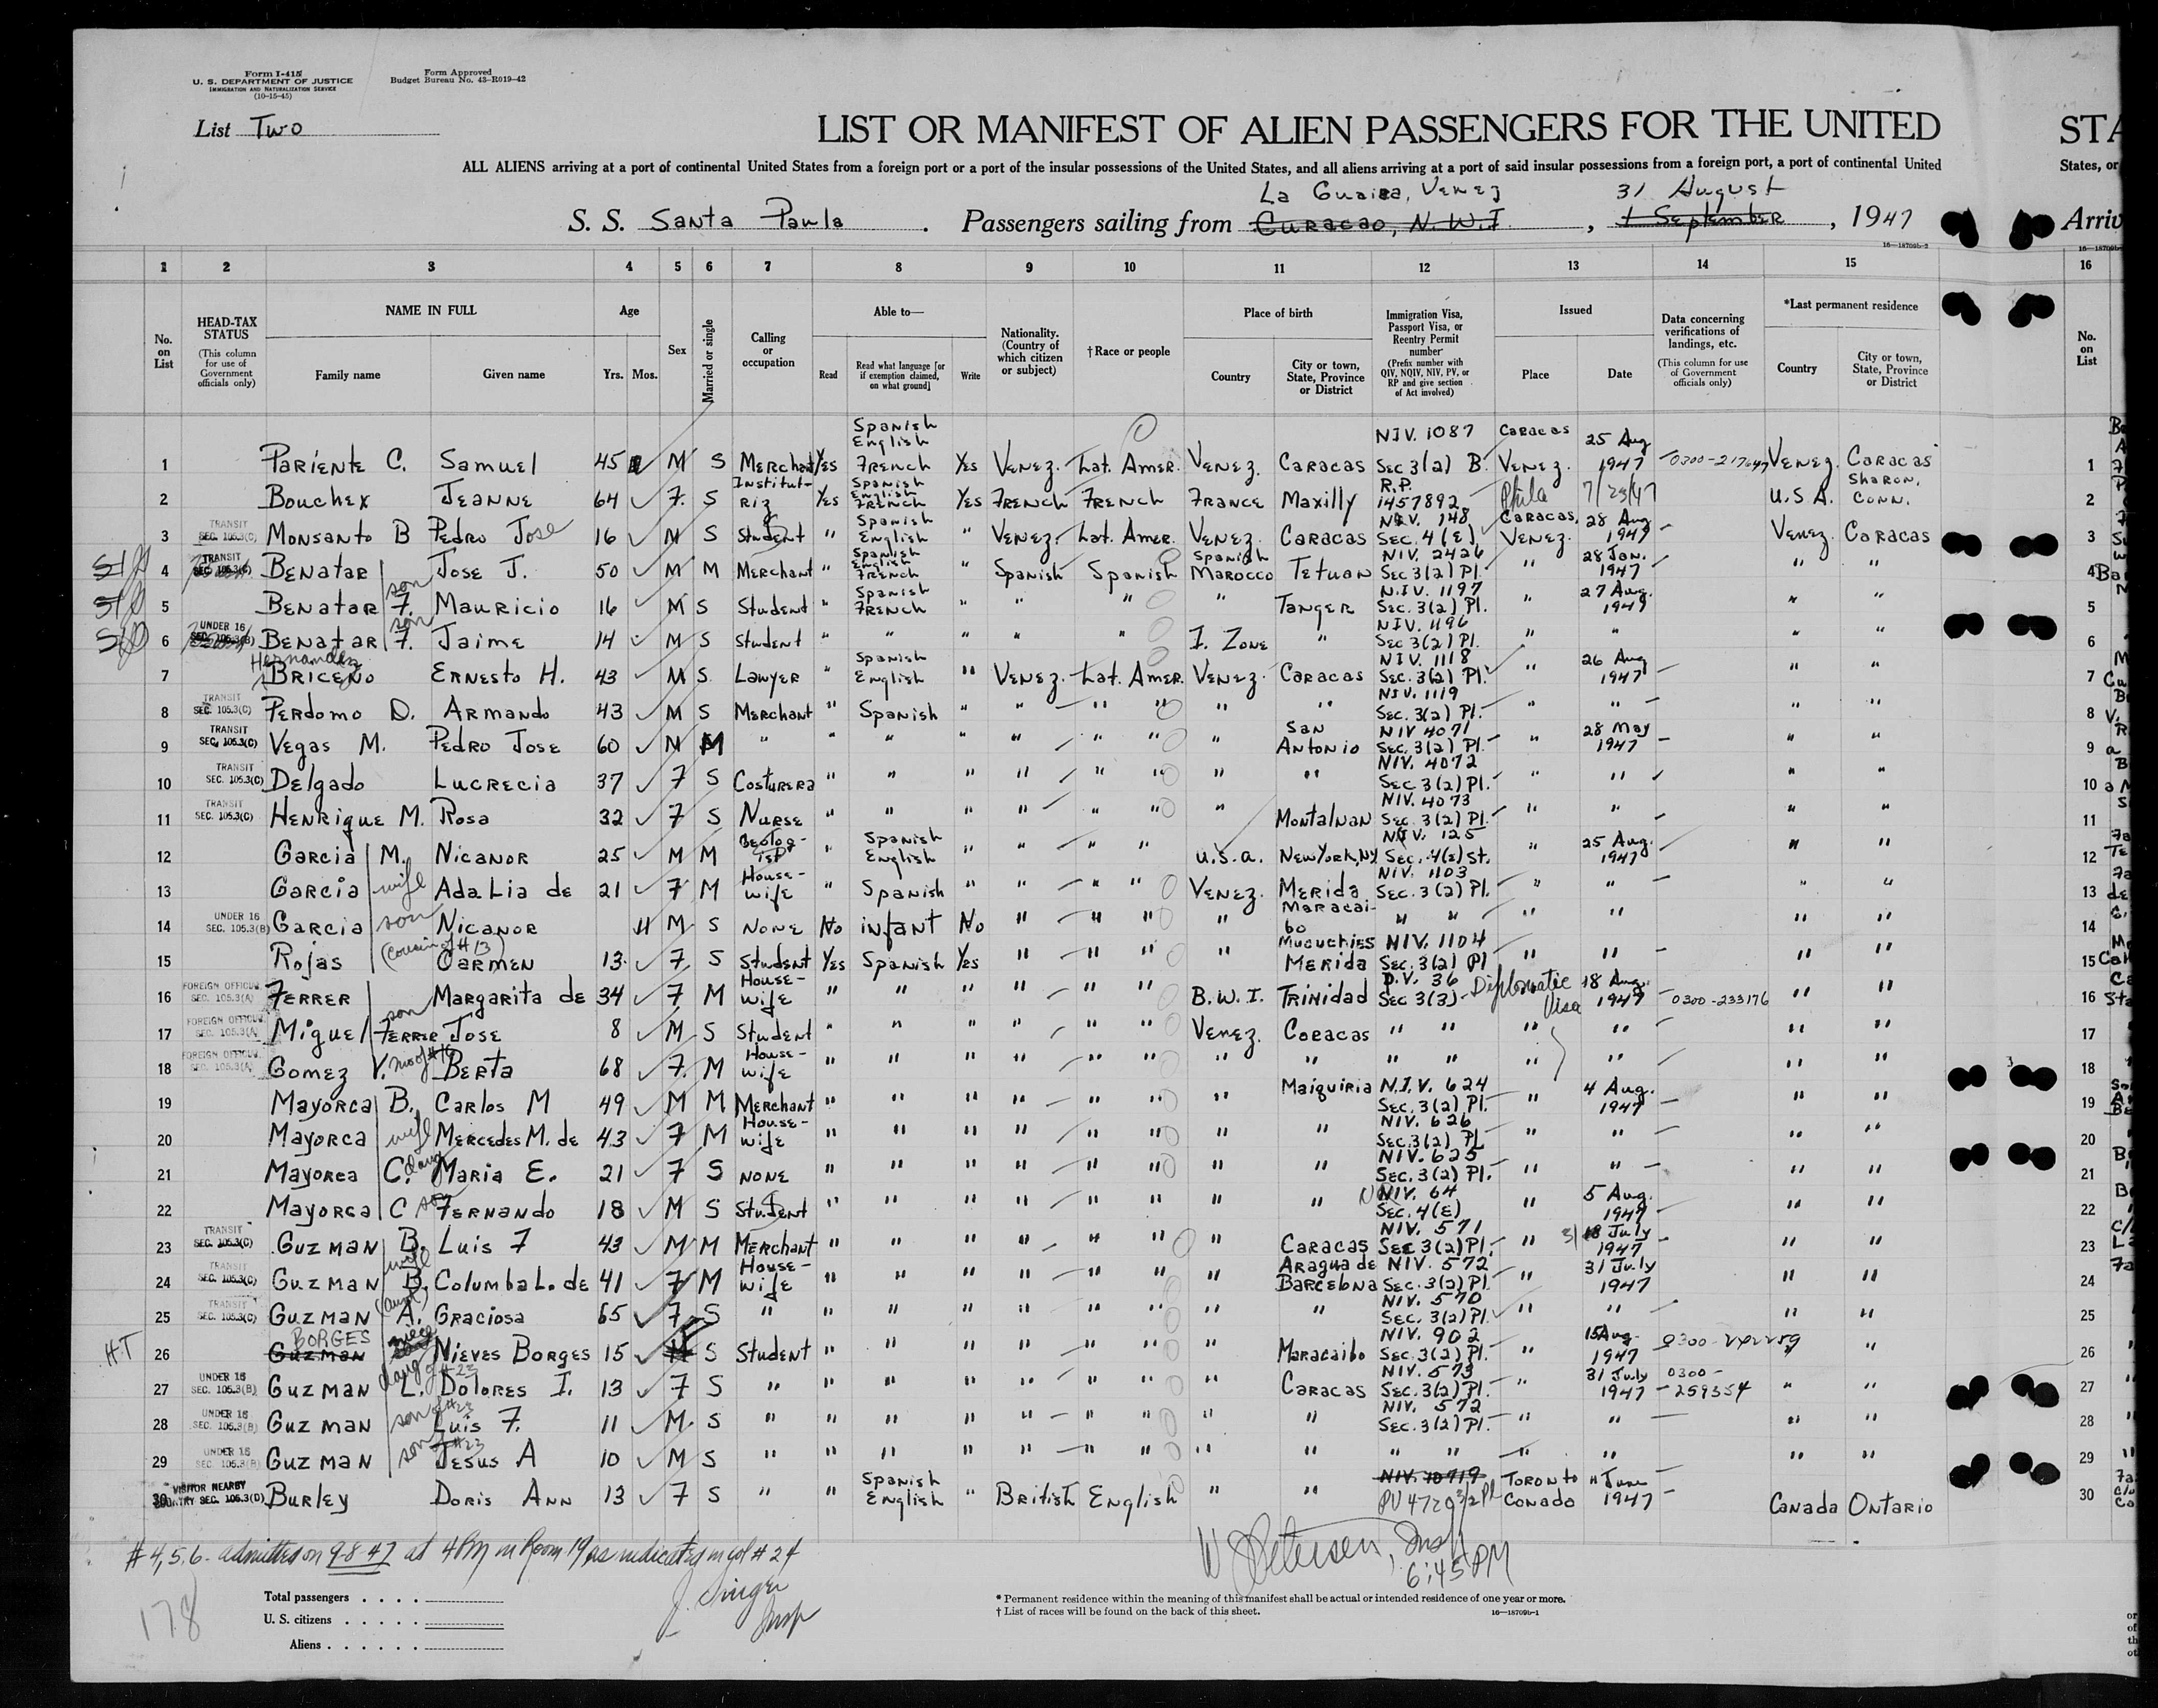 Form I-415
U. S. DEPARTMENT OF JUSTICE
IMMIGRATION AND NATURALIZATION SERVICE
(10-15-45)
Form Approved
Budget Bureau No. 43-R019-42
List Two
LIST OR MANIFEST OF ALIEN PASSENGERS FOR THE UNITED
STA
ALL ALIENS arriving at a port of continental United States from a foreign port or a port of the insular possessions of the United States, and all aliens arriving at a port of said insular possessions from a foreign port, a port of continental United
States, or
La Guaira, Venez 31 August
S. S. Santa Paula . Passengers sailing from Curacao, N.W.I , 1 September , 1947
Arriv
16—18709b-2
1 2 3 4 5 6 7 8 9 10 11 12 13 14 15 16
No. on List
HEAD-TAX STATUS (This column for use of Government officials only)
NAME IN FULL
Family name Given name
Age
Yrs. Mos.
Sex
Married or single
Calling or occupation
Able to—
Read Read what language [or if exemption claimed, on what ground] Write
Nationality. (Country of which citizen or subject)
†Race or people
Place of birth
Country City or town, State, Province or District
Immigration Visa, Passport Visa, or Reentry Permit number (Prefix number with QIV, NQIV, NIV, PV, or RP and give section of Act involved)
Issued
Place Date
Data concerning verifications of landings, etc. (This column for use of Government officials only)
*Last permanent residence
Country City or town, State, Province or District
No. on List
1 Pariente C. Samuel 45 M S Merchant Yes Spanish English French Yes Venez. Lat. Amer. Venez. Caracas NIV. 1087 Sec 3(2) B. Caracas Venez. 25 Aug 1947 0300-217647 Venez. Caracas 1
2 Bouchex Jeanne 64 F. S Institutriz Yes Spanish English French Yes French French France Maxilly R.P. 1457892 Phila 7/23/47 U.S.A. Sharon, Conn. 2
3 TRANSIT SEC. 105.3(C) Monsanto B Pedro Jose 16 M S Student " Spanish English " Venez. Lat. Amer. Venez. Caracas NIV. 148 Sec. 4(E) Caracas, Venez. 28 Aug 1947 Venez. Caracas 3
4 TRANSIT SEC. 105.3(C) Benatar Jose J. 50 M M Merchant " Spanish English French " Spanish Spanish Spanish Marocco Tetuan NIV. 2426 Sec 3(2) Pl. " 28 Jan. 1947 " " 4
5 Benatar F. son Mauricio 16 M S Student " Spanish French " " " " Tanger N.I.V. 1197 Sec. 3(2) Pl. " 27 Aug. 1947 " " 5
6 UNDER 16 SEC. 105.3(B) Benatar F. son Jaime 14 M S Student " " " " " I. Zone " NIV. 1196 Sec 3(2) Pl. " " " " 6
7 Hernandez Briceno Ernesto H. 43 M S. Lawyer " Spanish English " Venez. Lat. Amer. Venez. Caracas NIV. 1118 Sec. 3(2) Pl. " 26 Aug 1947 " " 7
8 TRANSIT SEC. 105.3(C) Perdomo D. Armando 43 M S Merchant " Spanish " " " " " " NIV. 1119 Sec. 3(2) Pl. " " " " 8
9 TRANSIT SEC. 105.3(C) Vegas M. Pedro Jose 60 M M " " " " " " " " San Antonio NIV 4071 Sec. 3(2) Pl. " 28 May 1947 " " 9
10 TRANSIT SEC. 105.3(C) Delgado Lucrecia 37 F S Costurera " " " " " " " " NIV. 4072 Sec 3(2) Pl. " " " " 10
11 TRANSIT SEC. 105.3(C) Henrique M. Rosa 32 F S Nurse " " " " " " " Montalnan NIV. 4073 Sec. 3(2) Pl. " " " " 11
12 Garcia M. Nicanor 25 M M Geologist " Spanish English " " " " U.S.A. New York, NY NIV. 125 Sec. 4(E) St. " 25 Aug. 1947 " " 12
13 Garcia wife Ada Lia de 21 F M Housewife " Spanish " " " " Venez. Merida NIV. 1103 Sec. 3(2) Pl. " " " " 13
14 UNDER 16 SEC. 105.3(B) Garcia son Nicanor 4 M S None No infant No " " " " Maracaibo " " " " " " 14
15 Rojas (cousin of #13) Carmen 13 F S Student Yes Spanish Yes " " " " Mucuchies Merida NIV. 1104 Sec. 3(2) Pl " " " " 15
16 FOREIGN OFFICIAL SEC. 105.3(A) Ferrer Margarita de 34 F M Housewife " " " " " " B.W.I. Trinidad D.V. 36 Sec 3(3) Diplomatic Visa 18 Aug. 1947 0300-233176 " " 16
17 FOREIGN OFFICIAL SEC. 105.3(A) Miguel Ferrer son Jose 8 M S Student " " " " " " Venez. Coracas " " " " " " 17
18 FOREIGN OFFICIAL SEC. 105.3(A) Gomez V. mo of #16 Berta 68 F. M Housewife " " " " " " " " " " " " " " 18
19 Mayorca B. Carlos M 49 M M Merchant " " " " " " " Maiquiria N.I.V. 624 Sec. 3(2) Pl. " 4 Aug. 1947 " " 19
20 Mayorca wife Mercedes M. de 43 F M Housewife " " " " " " " " NIV. 626 Sec. 3(2) Pl " " " " 20
21 Mayorca C. daug Maria E. 21 F S None " " " " " " " " NIV. 625 Sec. 3(2) Pl. " " " " 21
22 Mayorca C son Fernando 18 M S Student " " " " " " " " NIV. 64 Sec. 4(E) " 5 Aug. 1947 " " 22
23 TRANSIT SEC. 105.3(C) Guzman B. Luis F 43 M M Merchant " " " " " " " Caracas NIV. 571 Sec 3(2) Pl. " 31 18 July 1947 " " 23
24 TRANSIT SEC. 105.3(C) Guzman B. wife Columba L. de 41 F M Housewife " " " " " " " Aragua de Barcelona NIV. 572 Sec. 3(2) Pl. " 31 July 1947 " " 24
25 TRANSIT SEC. 105.3(C) Guzman A. (aunt) Graciosa 65 F S " " " " " " " " " NIV. 570 Sec. 3(2) Pl. " " " " 25
HT 26 BORGES Guzman niece Nieves Borges 15 F S Student " " " " " " " Maracaibo NIV. 902 Sec. 3(2) Pl. " 15 Aug. 1947 " " 26
27 UNDER 16 SEC. 105.3(B) Guzman L. daug of #23 Dolores I. 13 F S " " " " " " " " Caracas NIV. 573 Sec. 3(2) Pl. " 31 July 1947 0300-259354 " " 27
28 UNDER 16 SEC. 105.3(B) Guzman son of #23 Luis F. 11 M S " " " " " " " " " NIV. 572 Sec. 3(2) Pl. " " " " 28
29 UNDER 16 SEC. 105.3(B) Guzman son of #23 Jesus A 10 M S " " " " " " " " " " " " " " " 29
30 VISITOR NEARBY COUNTRY SEC. 105.3(D) Burley Doris Ann 13 F S " " Spanish English " British English " " NIV. 10719 PV 4720 3/2 Pl Toronto Canado 11 June 1947 Canada Ontario 30
#4,5,6- admitted on 9-8-47 at 4PM in Room 19 as indicated in col #24
J. Singer
Insp
W J Petersen, Insp
6:45 PM
178
Total passengers . . . .
U. S. citizens . . . . .
Aliens . . . . . .
* Permanent residence within the meaning of this manifest shall be actual or intended residence of one year or more.
† List of races will be found on the back of this sheet.
16—18709b-1